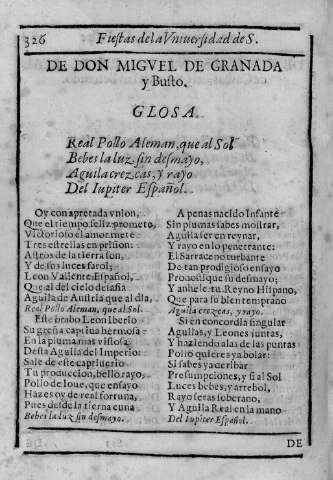 326 Fiestas de la Vniuersidad de S.
DE DON MIGVEL DE GRANADA
y Busto.
GLOSA.
Real Pollo Aleman, que al Sol
Bebes la luz, sin desmayo,
Aguila crezcas, y rayo
Del Iupiter Español.
Oy con apretada vnion,
Que el tiempo feliz prometo,
Victorioso el amor mete
Tres estrellas en prision:
Astros de la tierra son,
Y de sus luces farol,
Leon Valiente Español,
Que al del cielo desafia
Aguila de Austria que al dia,
Real Pollo Aleman, que al Sol.
Este brabo Leon Iberio
Su greña captiua hermosa
En la pluma mas vistosa
Desta Aguila del Imperio:
Sale de este captiuerio
Tu produccion, bello rayo,
Pollo de Ioue, que ensayo
Hazes oy de real fortuna,
Pues desde la tierna cuna
Bebes la luz sin desmayo.
Apenas nacido Infante
Sin plumas sabes mostrar,
Aguila ser en reynar,
Y rayo en lo penetrante:
El Sarraceno turbante
De tan prodigioso ensayo
Pronostique su desmayo;
Y anhele tu Reyno Hispano,
Que para su bien temprano
Aguila crezcas, y rayo.
Si en concordia singular
Aguilas, y Leones juntas,
Y haziendo alas de las puntas
Pollo quieres ya bolar:
Si sabes ya deribar
Presumpciones, y si al Sol
Luces bebes, y arrebol,
Rayo seras soberano,
Y Aguila Real en la mano
Del Iupiter Español.
DE